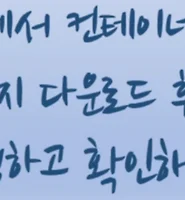 에서 컨테이너
지 다운로드 후
하고 확인하